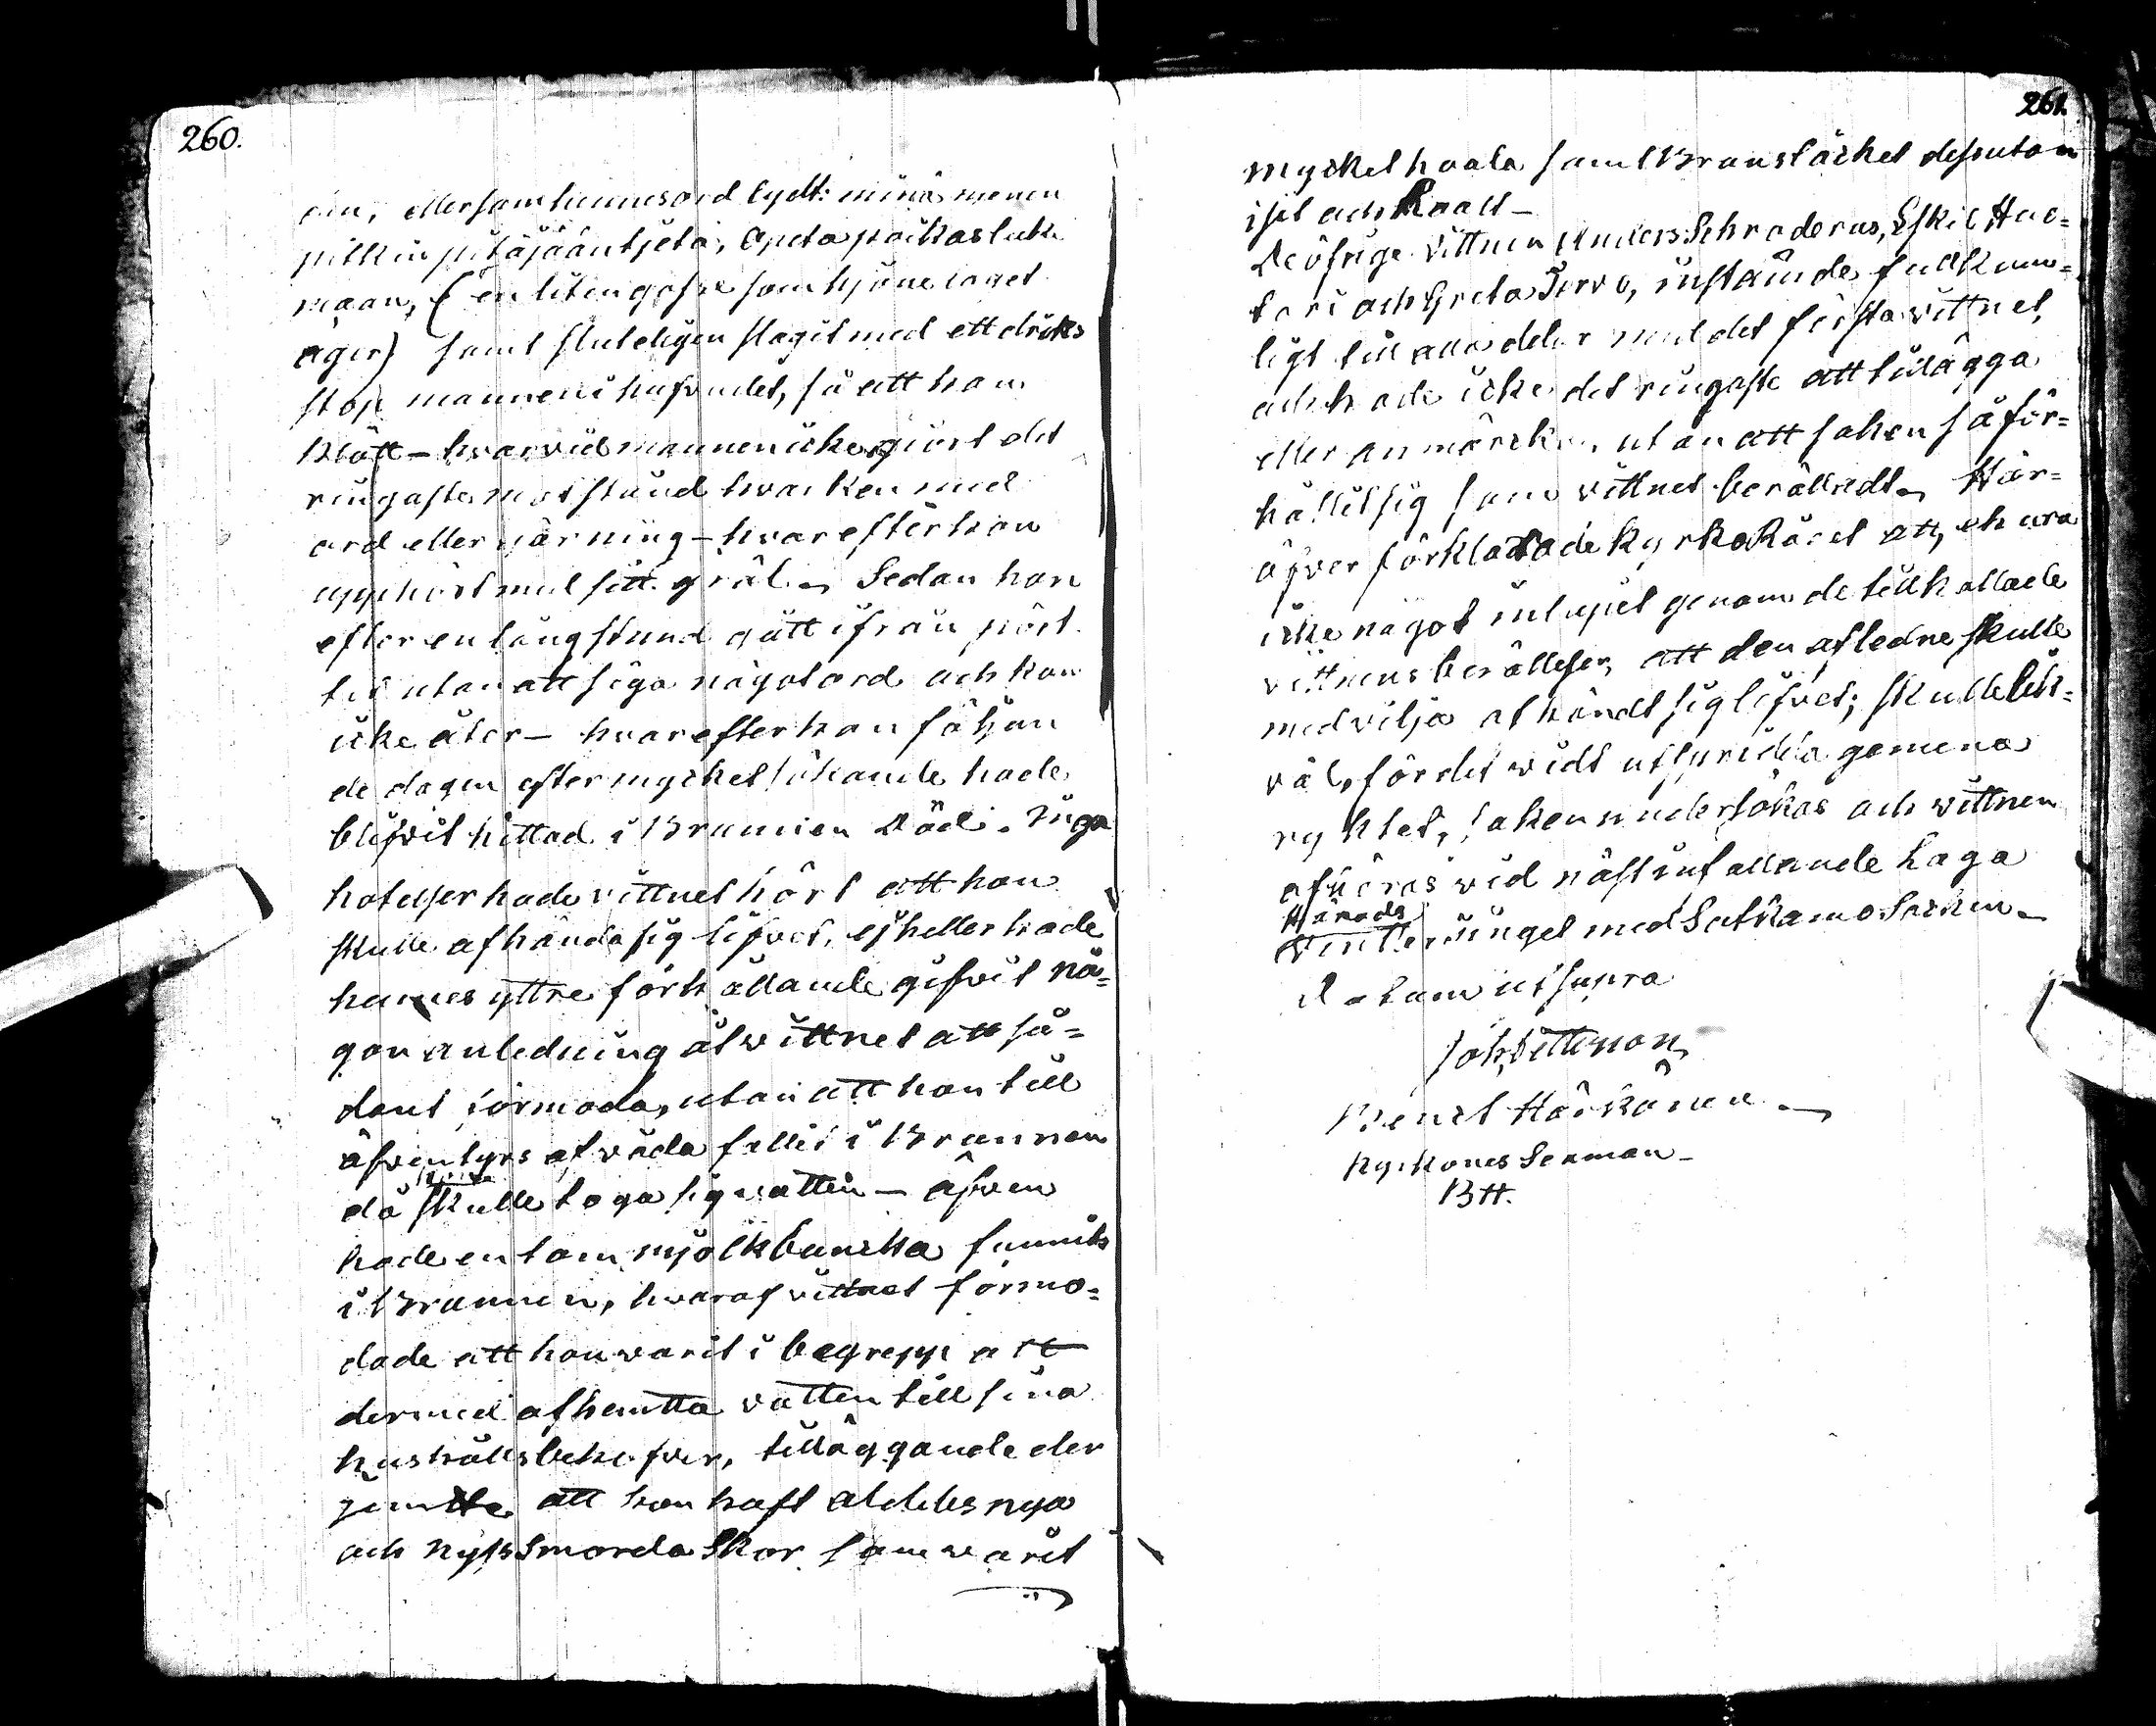 260.
om, eller som hennes ord lydt: minä menen
pitkin pitäjään
maan, (en liten gosse som hjonelaget
äger) samt sluteligen slagit med ett dricks
stop mannen i hufvudet, så att han
blött – hvarvid mannen icke giort det
ringaste motstånd hvarken med
ord eller gärning – hvarefter hon
upphört med sitt gräl. Sedan hon
efter en lång stund gått ifrån pört
tet utan att säga något ord och kom
icke åter – hvarefter hon följan
de dagen efter mycket sökande hade
blifvit hittad i Brunnen Död. Inga
hotelser hade vittnet hört att hon
skulle afhända sig lifvet, ej heller hade
hennes yttre förhållande gifvit nå=
gon anledning åt vittnet att så=
dant förmoda, utan att hon till
äfventyrs af våda fallit i Brunnen
då skulle taga sig vatten – äfven
hade en tom mjölkbuncka funnits
i Brunnen, hvaraf vittnet förmo=
dade att hon varit i begrepp att
dermed afhemtta vatten till sina
hushållsbehofver, tilläggande der
jemte att hon haft aldeles nya
och nyss smorda Skor som warit
261.
mycket haala samt Brunslåcket dessutom
isit och haalt –
De öfrige vittnen Anders Schroderus, Eskil Huo=
tari och Greta Torvo, instämde fullkom=
ligt till alla delar med det första vittnet,
och hade icke det ringaste att tillägga
eller anmärcka, utan att saken så för=
hållit sig som vittnet berättadt. Här=
öfver förklarade kyrkoRådet att, ehuru
icke något inlupit genom de tillkallade
vittnens berättelser, att den afledne skulle
med vilja afhändt sig lifvet; skulle lik=
väl, för det widt utspridda gemena
ryktet, saken undersökas och vittnen
afhöras vid näst infallande Laga
Härads
Vintterтinget med Sotkamo Socken –
Datum ut supra
Joh. Wettman
Bengt Härkönen –
Kyrkones Sexman –
BH.